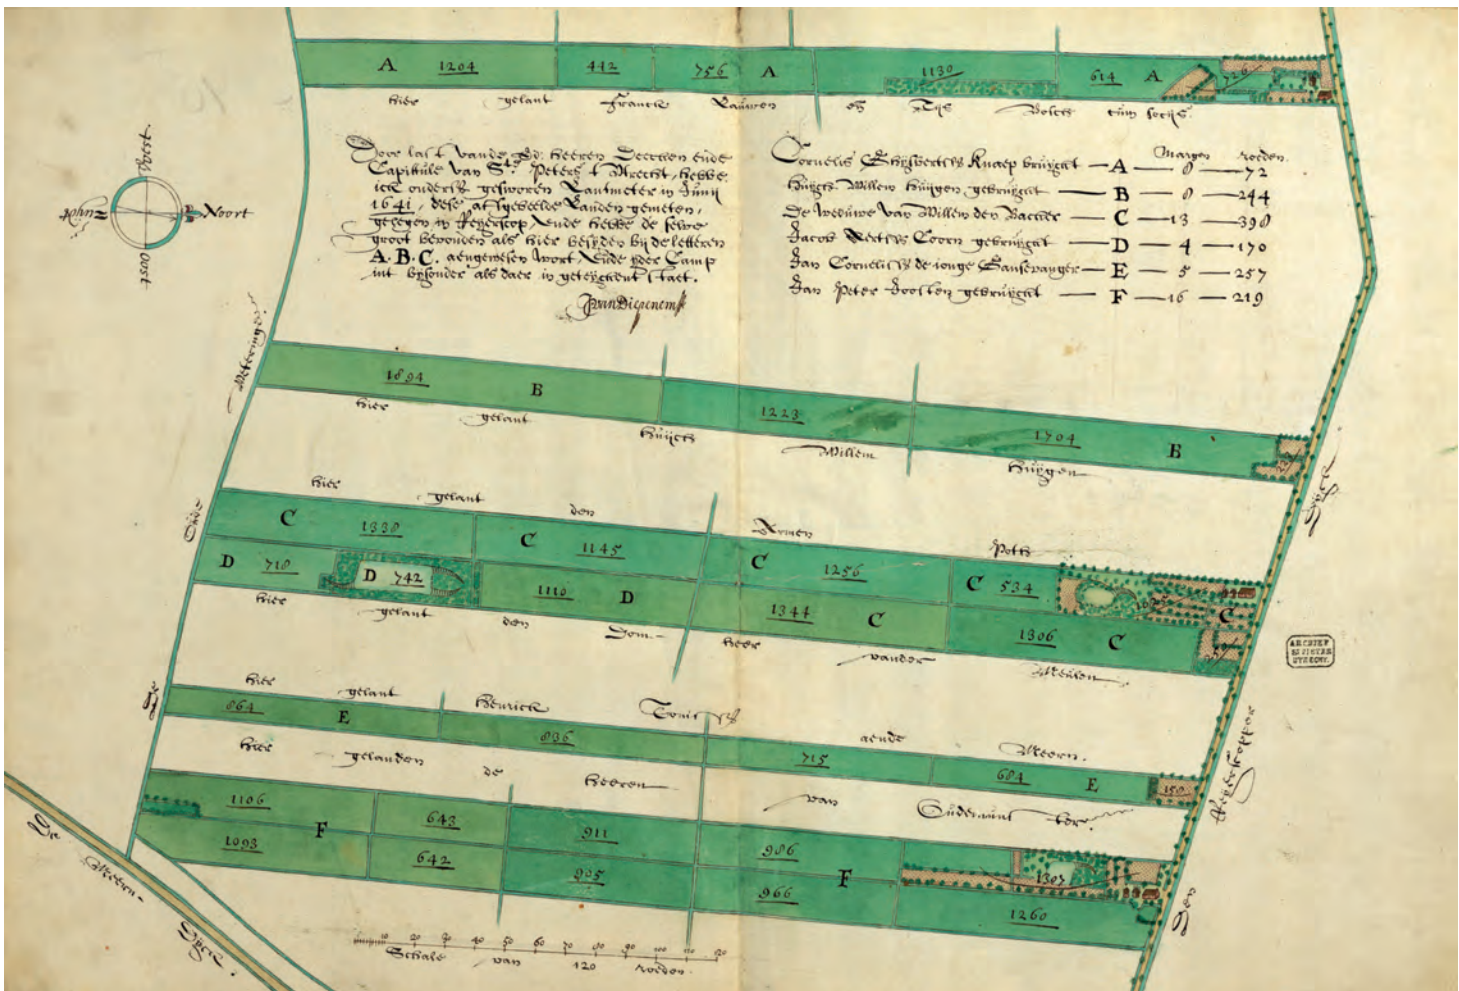 A 1204 442 756 A 1130 614 A 726
hier gelant Franck Lauwen en Tijs Bosch cum socijs.
Door last vande Ed: heeren Deecken ende
Capittule van Ste. Peters t Utrecht, hebbe
ick onders: gesworen Lantmeter in Junij
1641, dese afgebeelde Landen gemeten,
gelegen in Reyerscop Ende hebbe de selve
groot bevonden als hier besyden by de letteren
A. B. C. aengewesen wort Ende yder Camp
int bysonder als daer in geteyckent staet.
JvanDiepenem
Margen roeden.
Cornelis Ghysbertss Knaep bruyckt — A — 8 — 72
Huych Willem Huygen gebruyckt — B — 8 — 244
De weduwe van Willem den Backer — C — 13 — 398
Jacob Aertss Coorn gebruyckt — D — 4 — 170
Jan Corneliss de jonge Gansevanger — E — 5 — 257
Jan Peter Joosten gebruyckt — F — 16 — 219
West.
Zuyt
Noort
Oost
De Oude Weteringe.
1894 B 1223 1704 B
hier gelant Huijch Willem Huygen
hier gelant den Armen Poth
C 1338 C 1145 C 1256 C 534 C
D 718 D 742 1110 D 1344 C 1306 C
hier gelant den Dom- heer vander Meulen
hier gelant Henrick Tonis aende Meern.
864 E 836 715 684 E 158
hier gelanden de heeren van Oudemunster.
1106 F 643 911 986 F 1307
1093 642 905 966 1260
Den Reyerskopper Dyck
De Meern- Dyck.
10 20 30 40 50 60 70 80 90 100 110 120
Schale van 120 roeden.
ARCHIEF
UTRECHT.